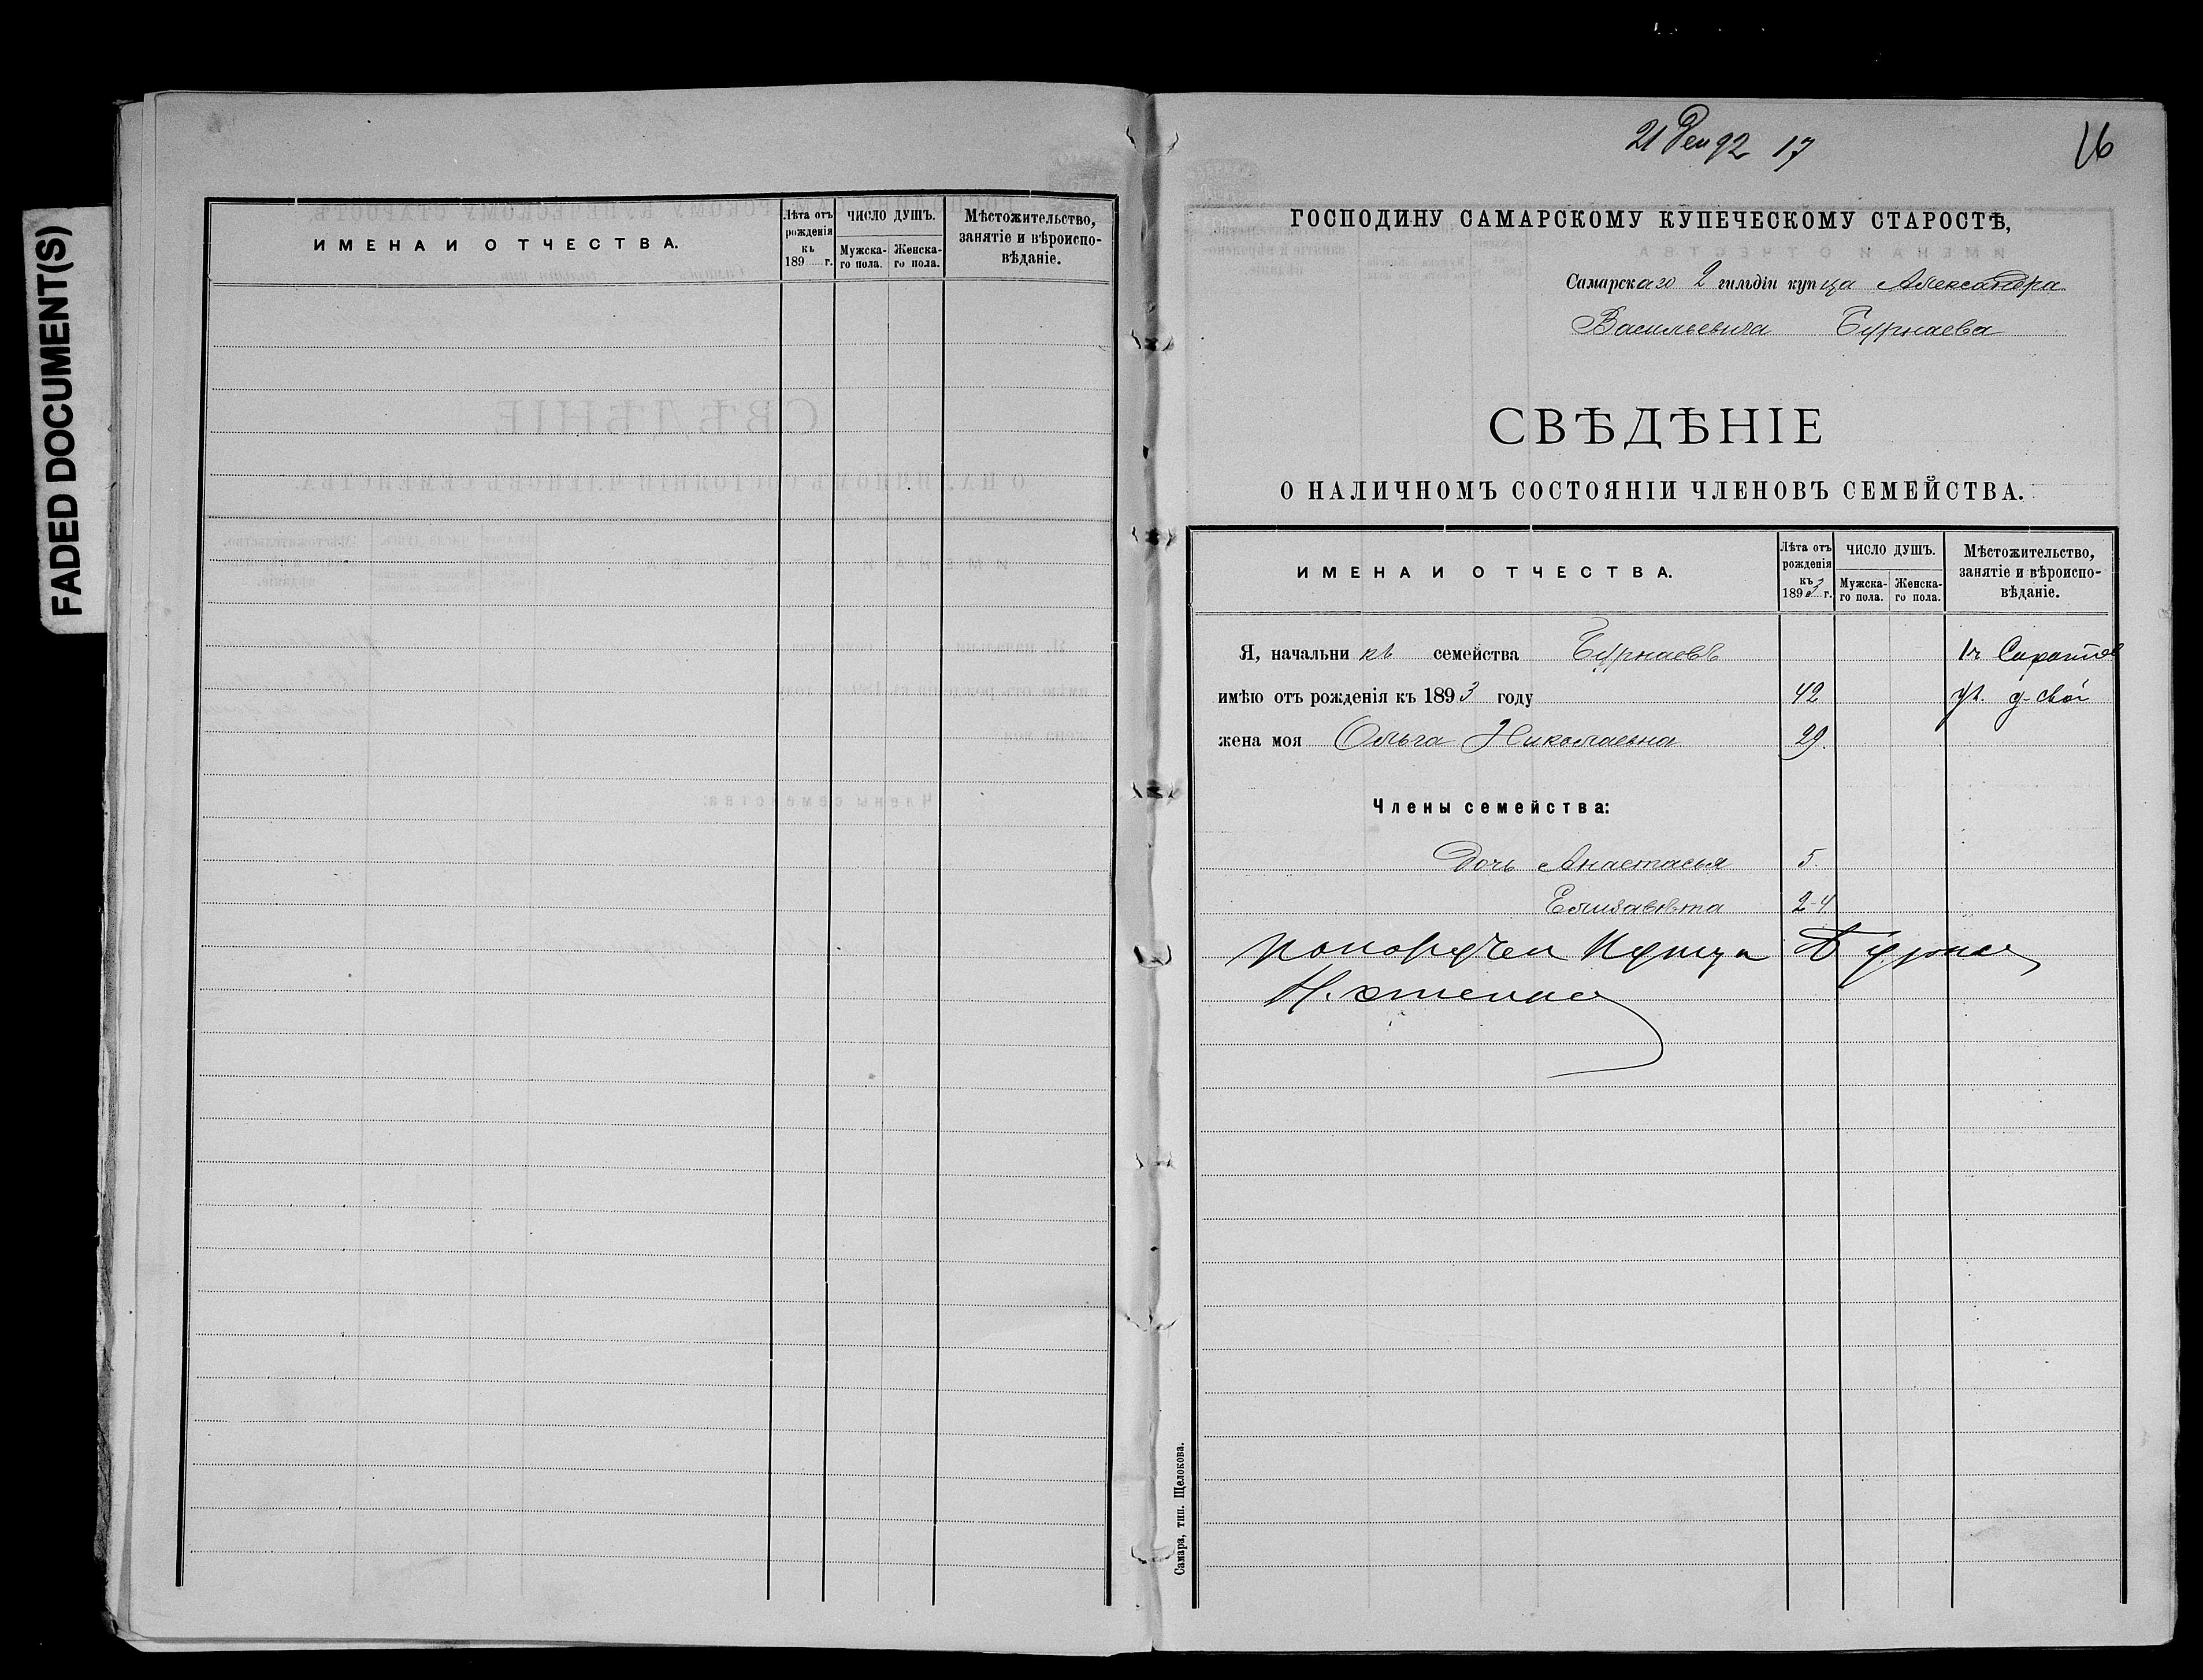 FADED DOCUMENT(S)
ИМЕНА И ОТЧЕСТВА.
Лѣта отъ рожденія къ 189 г.
ЧИСЛО ДУШЪ.
Мужска-го пола.
Женска-го пола.
Мѣстожительство, занятіе и вѣроиспо-вѣданіе.
21 Дек 92 17
16
ГОСПОДИНУ САМАРСКОМУ КУПЕЧЕСКОМУ СТАРОСТѢ,
Самарскаго 2 гильдіи купца Александра
Васильевича Бурнаева
СВѢДѢНІЕ
О НАЛИЧНОМЪ СОСТОЯНІИ ЧЛЕНОВЪ СЕМЕЙСТВА.
ИМЕНА И ОТЧЕСТВА.
Лѣта отъ рожденія къ 1893 г.
ЧИСЛО ДУШЪ.
Мужска-го пола.
Женска-го пола.
Мѣстожительство, занятіе и вѣроиспо-вѣданіе.
Я, начальникъ семейства Бурнаевъ 1ч
имѣю отъ рожденія къ 1893 году 42
жена моя Ольга Николаевна 29.
Члены семейства:
Дочь Анастасья 5.
Елизавѣта 2-4.
Купца
Самара, тип. Щелокова.